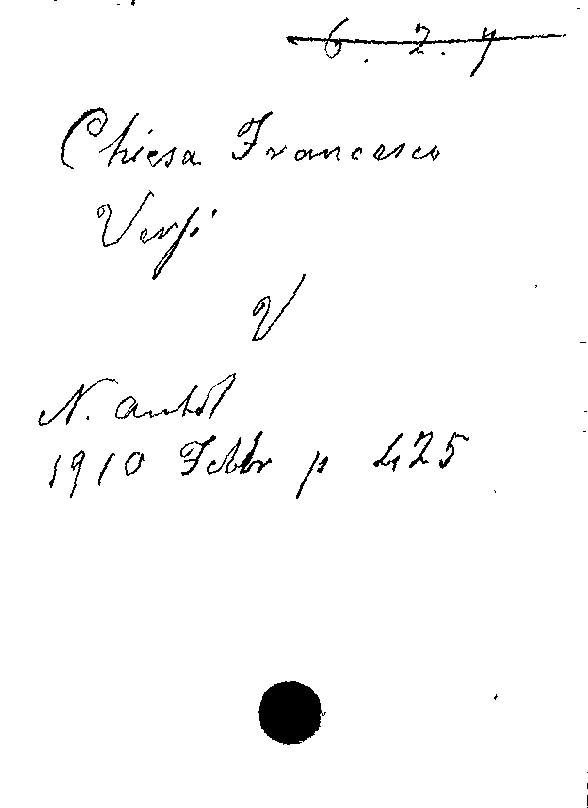 6. 2. 7
Chiesa Francesco
Versi
V
N. Antol
1910 Febbr p 425